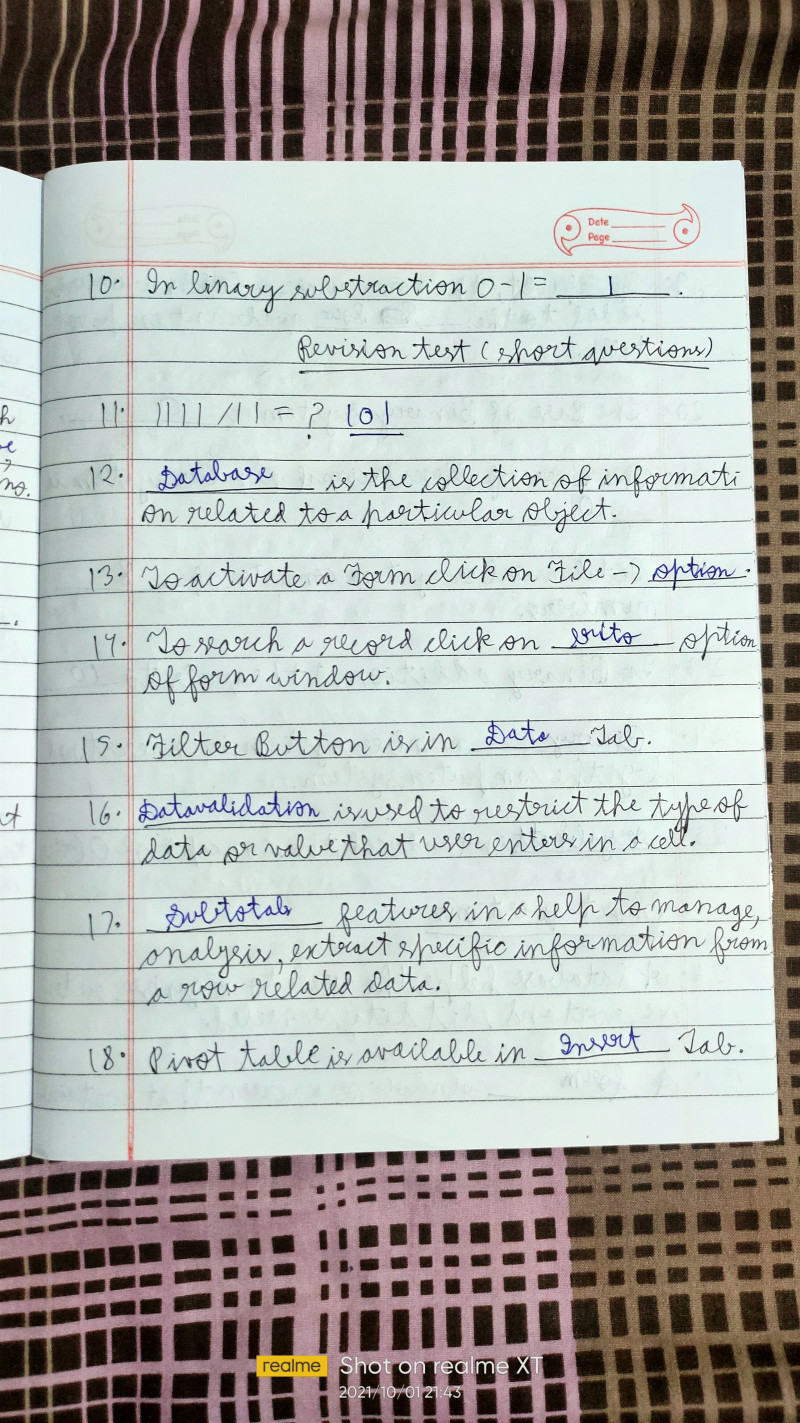 Date
Page
10. In binary substraction 0-1 = 1 .
Revision test (short questions)
11. 1111 /11 = ? 101
12. Database is the collection of informati
on related to a particular object.
13. To activate a Form click on File -> option.
14. To search a record click on option
of form window.
15. Filter Button is in Data Tab.
16. Datavalidation is used to restrict the type of
data or value that user enters in a cell.
17. Subtotals features in a help to manage,
analysis, extract specific information from
a row related data.
18. Pivot table is available in Insert Tab.
h
no.
at
realme Shot on realme XT
2021/10/01 21:43